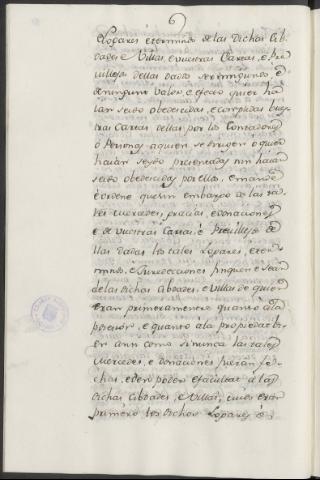 6
Logares e terminos de las Dichas Cib-
dades e Villas, e vuestras Cartas, e Pre-
villejos dellas dados ser ningunos, e
de ningunt valor, e efecto que ha-
ian seido obedecidas, e complidas vues-
tras Cartas dellas por los Contadores
ó Personas á quien se dirigen ó quien
haian seydo presentadas nin haian
seido obedecidas por ellas, e mandé
e ordené que sin embargo de las ta-
les mercedes, gracias, e donaciones
e de vuestras Cartas, é Previllejos de
llas dadas los tales Logares, e ter-
minos, e Jurediciones finquen e sean
de las dichas Cibdades, e Villas de quien
eran primeramente quanto á la
posesion, e quanto a la propiedad bi-
en ansi como si nunca las tales
mercedes, e donaciones fueran fe-
chas, e dere poder e facultat á las
dichas Cibdades, e Villas, cuios eran
primero los dichos Logares é